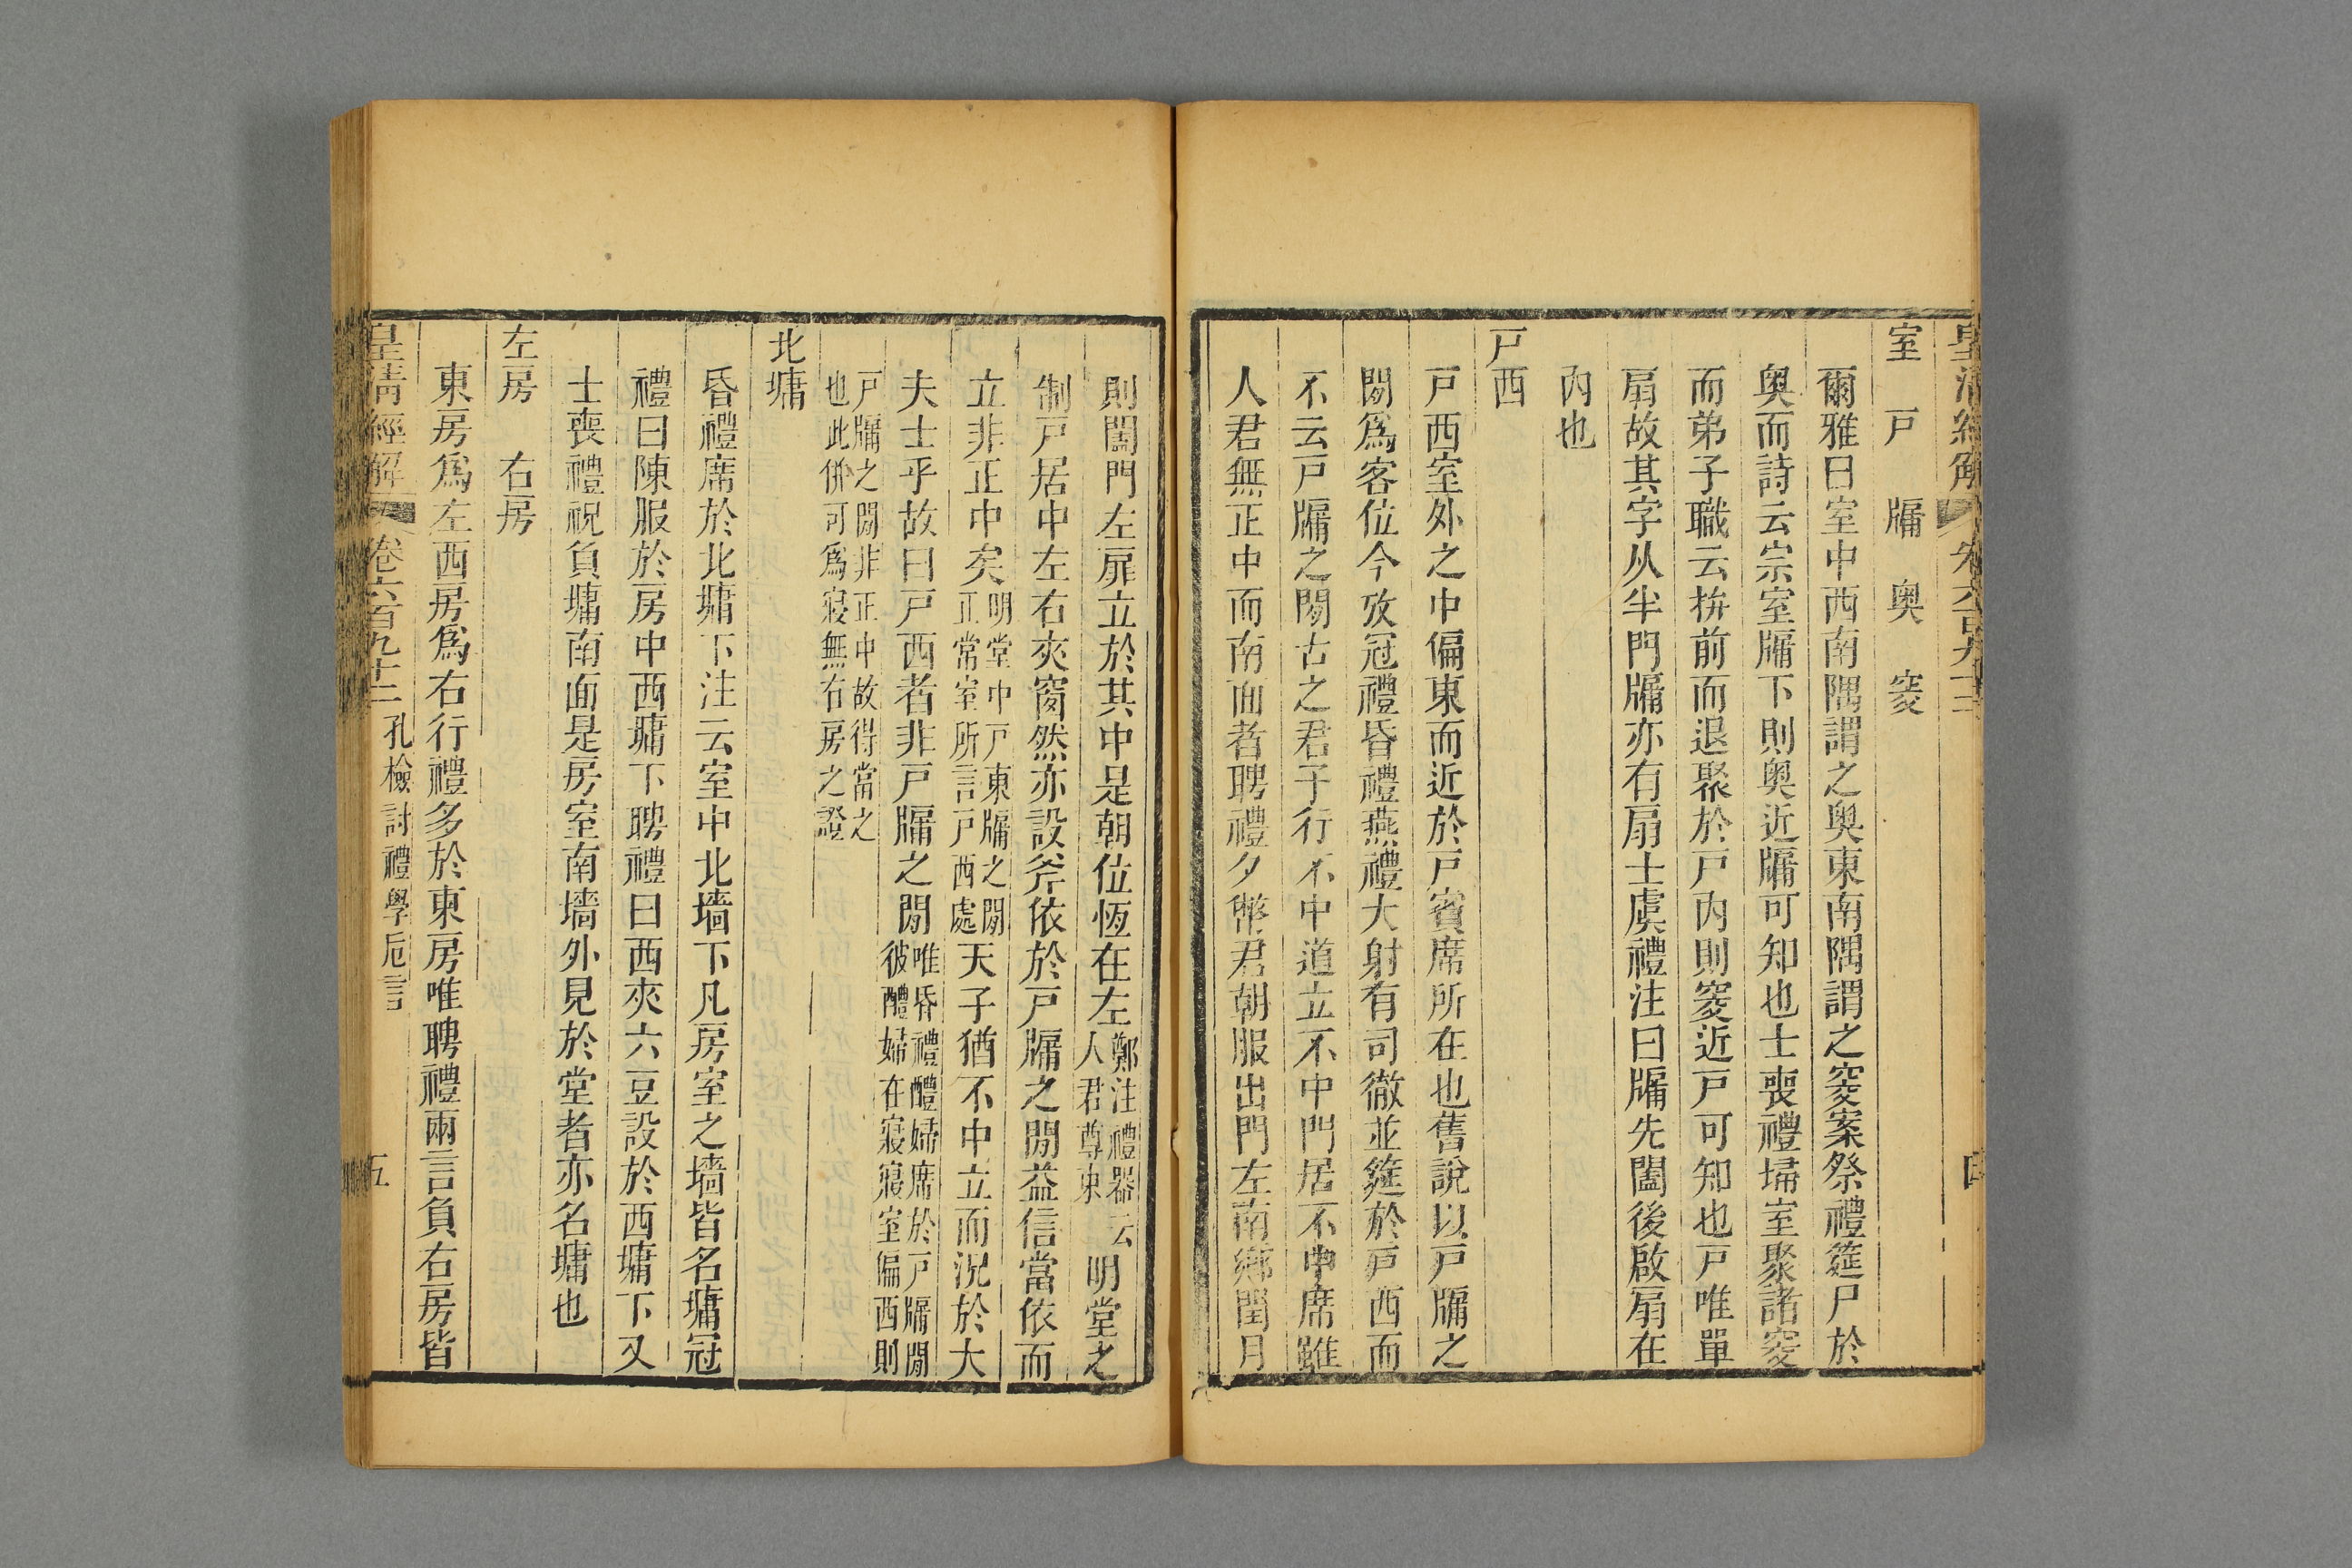 皇清經解 卷六百九十二 四
室 戸 牖 奥 窔
爾雅曰室中西南隅謂之奥東南隅謂之窔案祭禮筵尸於
奥而詩云宗室牖下則奥近牖可知也士喪禮埽室聚諸窔
而弟子職云拚前而退聚於戸內則窔近戸可知也戸唯單
扇故其字从半門牖亦有扇士虞禮注曰牖先闔後啟扇在
內也
戸西
戸西室外之中偏東而近於戸賓席所在也舊說以戸牖之
閒爲客位今攷冠禮昏禮燕禮大射有司徹並筵於戸西而
不云戸牖之閒古之君子行不中道立不中門居不中席雖
人君無正中而南面者聘禮夕幣君朝服出門左南鄉閏月
則闔門左扉立於其中是朝位恆在左鄭注禮器云人君尊東明堂之
制戸居中左右夾窗然亦設斧依於戸牖之閒益信當依而
立非正中矣明堂中戸東牖之閒正常室所言戸西處天子猶不中立而況於大
夫士乎故曰戸西者非戸牖之閒唯昏禮醴婦席於戸牖閒彼醴婦在寢寢室偏西則
戸牖之閒非正中故得當之也此倂可爲寢無右房之證
北墉
昏禮席於北墉下注云室中北墻下凡房室之墻皆名墉冠
禮曰陳服於房中西墉下聘禮曰西夾六豆設於西墉下又
士喪禮祝負墉南面是房室南墻外見於堂者亦名墉也
左房 右房
東房爲左西房爲右行禮多於東房唯聘禮兩言負右房皆
皇清經解 卷六百九十二 孔檢討禮學卮言 五